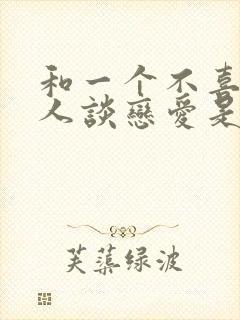 和一个不喜
人談戀愛是
芙蕖绿波